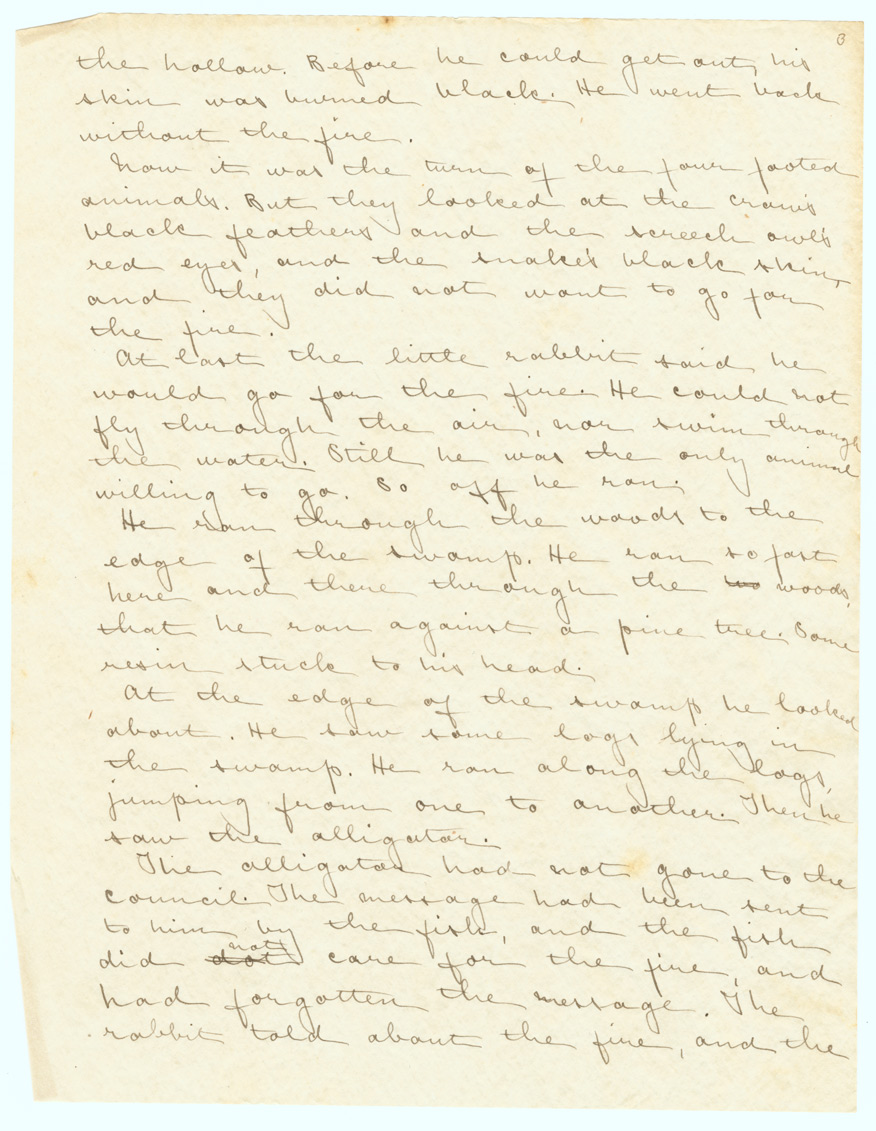 3
the hollow. Before he could get out, his
skin was burned black. He went back
without the fire.
Now it was the turn of the four footed
animals. But they looked at the crow's
black feathers and the screech owl's
red eyes, and the snake's black skin,
and they did not want to go for
the fire.
At last the little rabbit said he
would go for the fire. He could not
fly through the air, nor swim through
the water. Still he was the only animal
willing to go. So off he ran.
He ran through the woods to the
edge of the swamp. He ran so fast
here and there through the wo woods,
that he ran against a pine tree. Some
resin stuck to his head.
At the edge of the swamp he looked
about. He saw some logs lying in
the swamp. He ran along the logs,
jumping from one to another. Then he
saw the alligator.
The alligator had not gone to the
council. The message had been sent
to him by the fish, and the fish
not
did dot care for the fire, and
had forgotten the message. The
rabbit told about the fire, and the